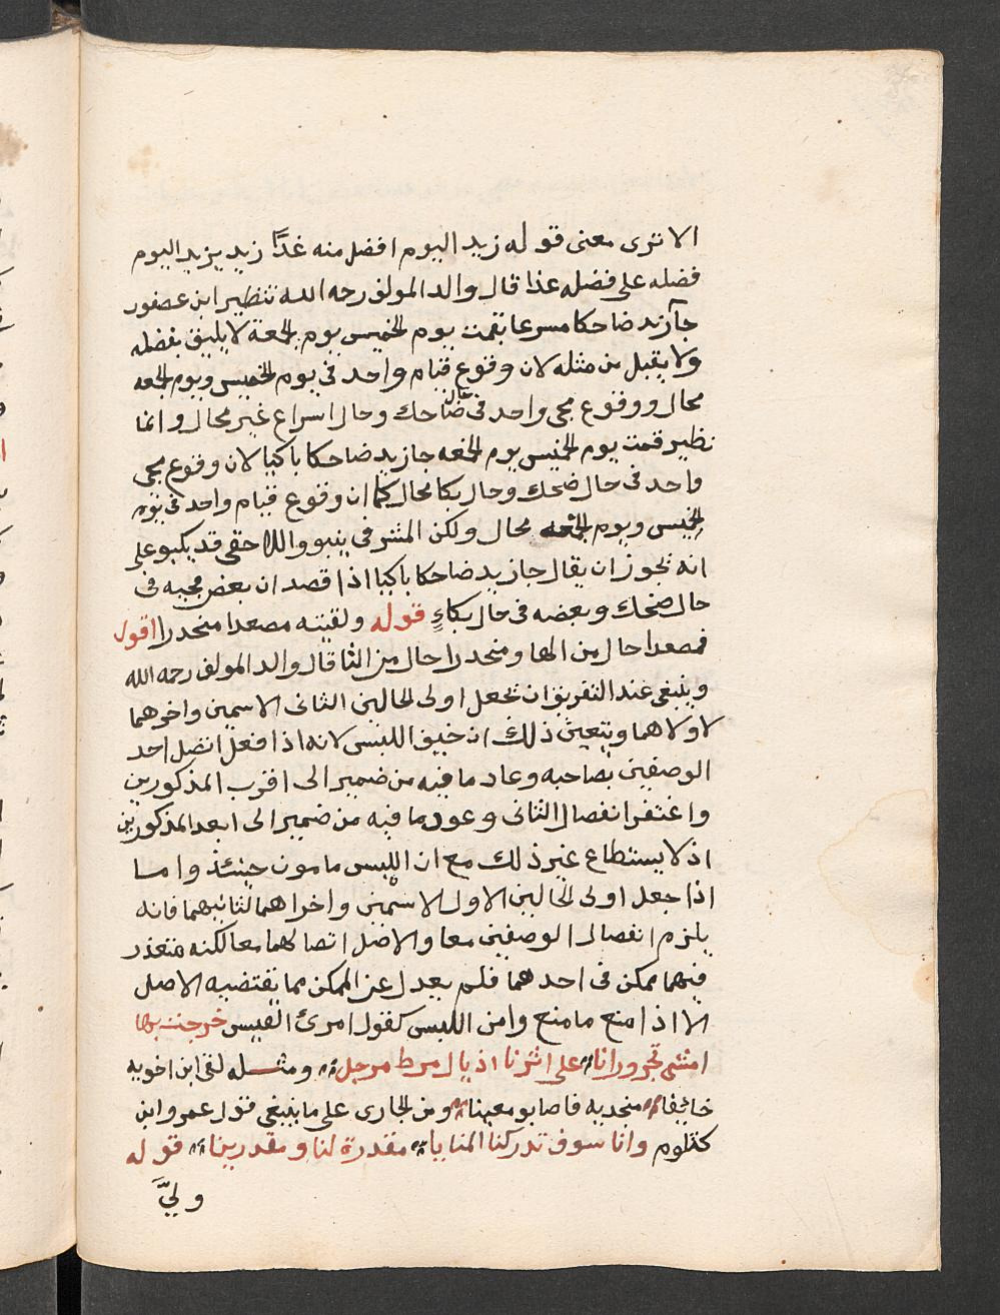 الا ترى معنى قوله زيد اليوم افضل منه غدًا زيد يزيد اليوم
فضله على فضله غدا قال والد المولف رحمه الله تنظير ابن عصفور
جآ زيد ضاحكا مسرعا بقمت يوم الخميس يوم الجمعة لا يليق بفضله
ولا يقبل من مثله لان وقوع قيام واحد في يوم الخميس ويوم الجمعه
محال ووقوع مجي واحد في حال ضاحك وحال اسراع غير محال وانما
نظير قمت يوم الخميس يوم الجمعه جا زيد ضاحكا باكيا لان وقوع مجي
واحد في حال ضحك وحال بكا محال كما ان وقوع قيام واحد في يوم
الخميس ويوم الجمعه محال ولكن المشرفي ينبو واللاحقي قد يكبو على
انه يجوز ان يقال جا زيد ضاحكا باكيا اذا قصد ان بعض مجيه في
حال ضحك وبعضه في حال بكاءٍ قوله ولقيته مصعدا منحدرا اقول
فمصعدا حال من الها ومنحدرا حال من التا قال والد المولف رحمه الله
وينبغي عند التفريق ان تجعل اولى الحالين الثاني الاسمين واخرهما
لاولاهما ويتعين ذلك ان خيف اللبس لانه اذا فعل اتصل احد
الوصفين بصاحبه وعاد ما فيه من ضمير الى اقرب المذكورين
واغتفر انفصال الثاني وعود ما فيه من ضمير الى ابعد المذكورين
اذ لا يستطاع غير ذلك مع ان اللبس مامون حينئذ واما
اذا جعل اولى الحالين الاول الاسمين واخراهما لثانيهما فانه
يلزم انفصال الوصفين معا والاصل اتصالهما معا لكنه متعذر
فيهما ممكن في احدهما فلم يعدل عن الممكن مما يقتضيه الاصل
الا اذا منع مانع وامن اللبس كقول امرئ القيس خرجت بها
امشي تجر ورانا على اثرنا اذيال مرط مرجل ومثله لقي ابن اخويه
خايفا منجديه فاصابو مغنما ومن الجاري على ما ينبغي قول عمرو ابن
كلثوم وانا سوف تدركنا المنايا مقدرة لنا ومقدرينا قوله
وليَّ